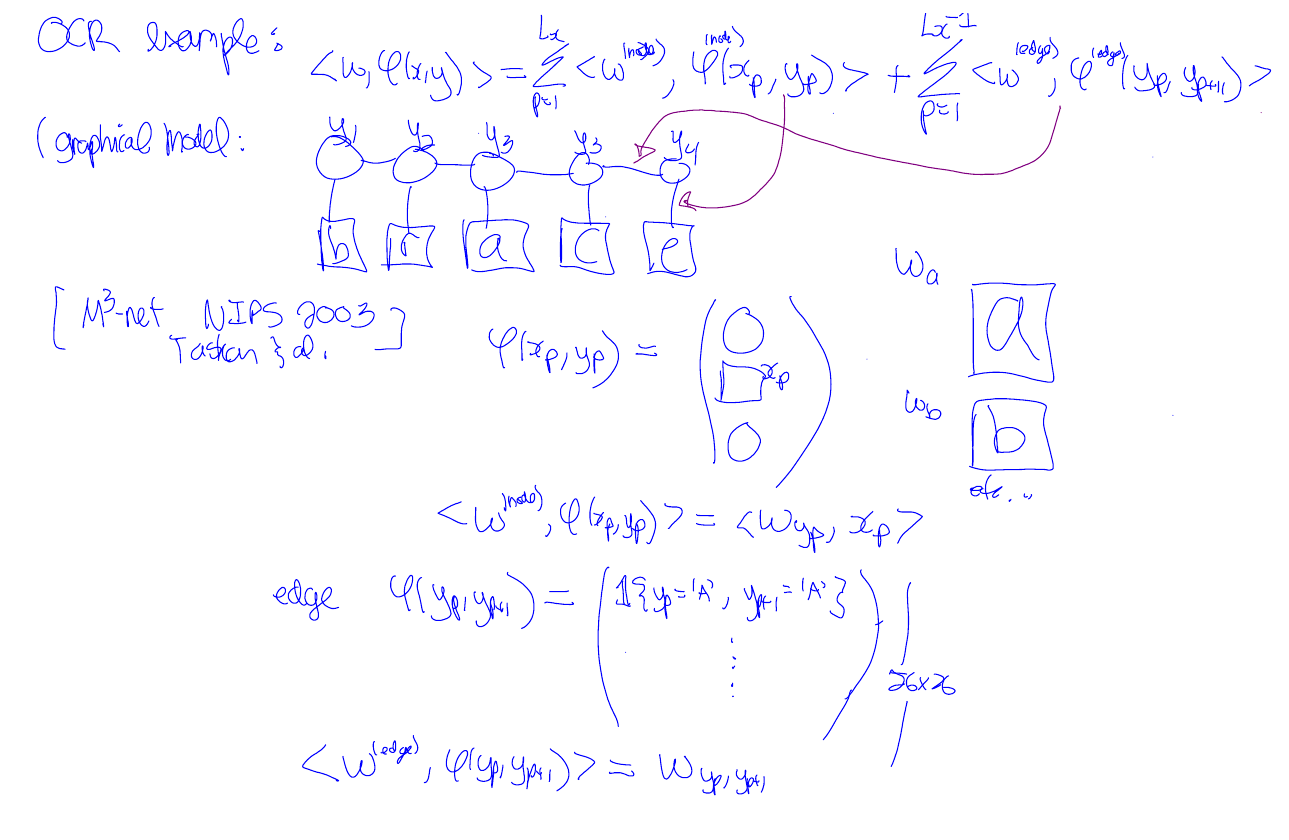 OCR example:
<w, φ(x,y)> = Σ_{p=1}^{Lx} <w^(node), φ^(node)(x_p, y_p)> + Σ_{p=1}^{Lx-1} <w^(edge), φ^(edge)(y_p, y_{p+1})>
(graphical model:
y_1 y_2 y_3 y_3 y_4
b r a c e
w_a a
[M³-net NIPS 2003
Taskar & al.]
φ(x_p, y_p) = ( 0
x_p
0 )
w_b b
etc...
<w^(node), φ(x_p, y_p)> = <w_{y_p}, x_p>
edge φ(y_p, y_{p+1}) = ( 1{y_p='A', y_{p+1}='A'}
⋮ ) 26x26
<w^(edge), φ(y_p, y_{p+1})> = w_{y_p, y_{p+1}}